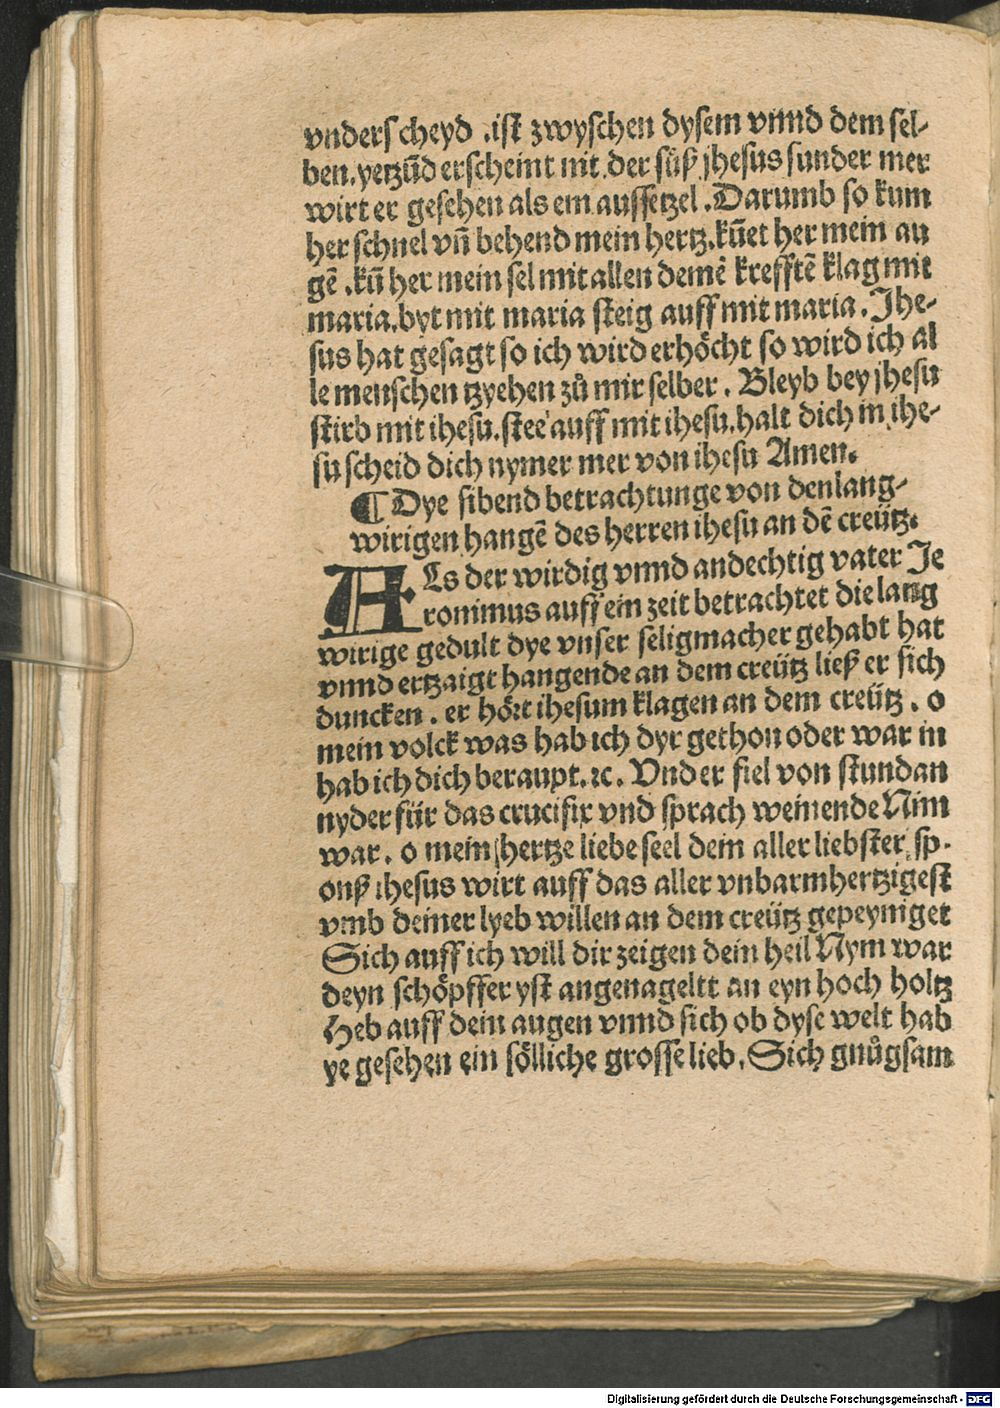 vnderscheyd .ist zwyschen dysem vnnd dem sel-
ben.yetzūd erscheint nit der süß jhesus sunder mer
wirt er gesehen als ein aussetzel .Darumb so kum
her schnel vñ behend mein hertz.kūet her mein au
gē .kū her mein sel mit allen deinē krefftē klag mit
maria.byt mit maria steig auff mit maria. Jhe-
sus hat gesagt so ich wird erhöcht so wird ich al
le menschen tzyehen zů mir selber . Bleyb bey jhesu
stirb mit ihesu.stee auff mit ihesu.halt dich in jhe-
su scheid dich nymer mer von ihesu Amen.
¶ Dye sibend betrachtunge von den lang-
wirigen hangē des herren ihesu an dē creütz.
ALs der wirdig vnnd andechtig vater Je
ronimus auff ein zeit betrachtet die lang
wirige gedult dye vnser seligmacher gehabt hat
vnnd ertzaigt hangende an dem creütz ließ er sich
duncken . er hört ihesum klagen an dem creütz . o
mein volck was hab ich dyr gethon oder war in
hab ich dich beraupt.ꝛc. Vnd er fiel von stundan
nyder für das crucifix vnd sprach weinende Nim
war . o mein hertze liebe seel dein aller liebster sp-
onß ihesus wirt auff das aller vnbarmhertzigest
vmb deiner lyeb willen an dem creütz gepeyniget
Sich auff ich will dir zeigen dein heil Nym war
deyn schöpffer yst angenageltt an eyn hoch holtz
Heb auff dein augen vnnd sich ob dyse welt hab
ye gesehen ein sölliche grosse lieb. Sich gnůgsam
Digitalisierung gefördert durch die Deutsche Forschungsgemeinschaft - DFG